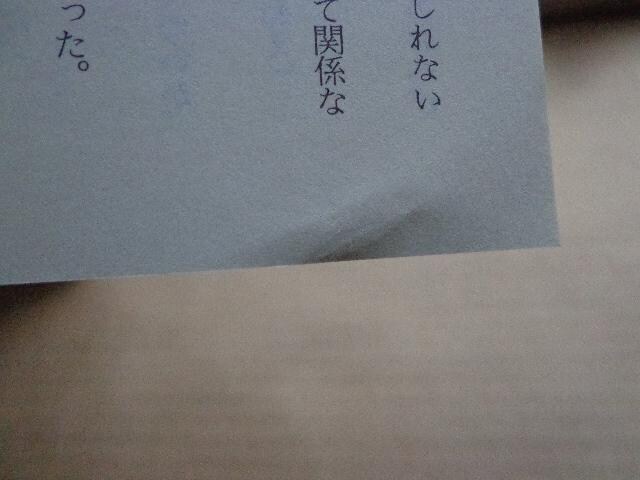 しれない
て関係な
った。